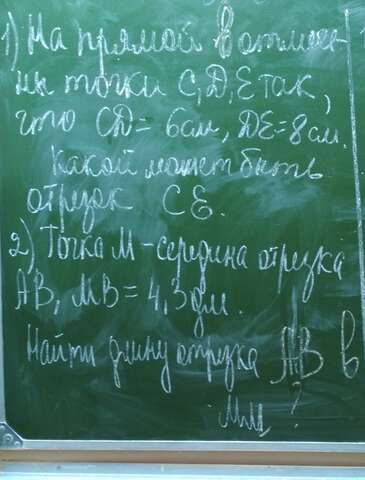 1) На прямой в отмече-
ны точки C, D, E так,
что CD = 6см, DE = 8 см.
Какой может быть
отрезок CE.
2) Точка M - середина отрезка
AB, MB = 4,3 дм.
Найти длину отрезка AB в
мм ?